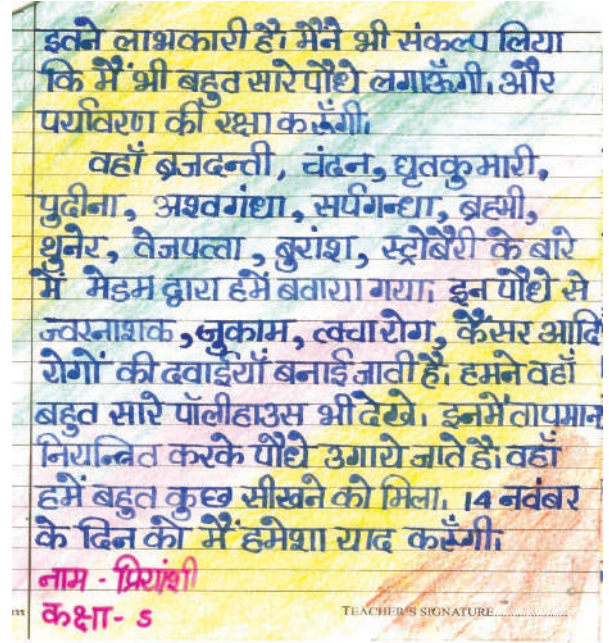 इतने लाभकारी है। मैंने भी संकल्प लिया
कि मैं भी बहुत सारे पौधे लगाऊँगी। और
पर्यावरण की रक्षा करूँगी।
वहाँ ब्रजदन्ती, चंदन, घृतकुमारी,
पुदीना, अश्वगंधा, सर्पगन्धा, ब्रह्मी,
थुनेर, तेजपत्ता, बुरांश, स्ट्रोबैरी के बारे
में मेडम द्वारा हमें बताया गया। इन पौधे से
ज्वरनाशक, जुकाम, त्वचा रोग, कैंसर आदि
रोगों की दवाईयाँ बनाई जाती है। हमने वहाँ
बहुत सारे पॉलीहाउस भी देखे। इनमें तापमान
नियन्त्रित करके पौधे उगाये जाते है। वहाँ
हमें बहुत कुछ सीखने को मिला। 14 नवंबर
के दिन को मैं हमेशा याद करूँगी।
नाम - प्रियांशी
कक्षा - 5
TEACHER'S SIGNATURE